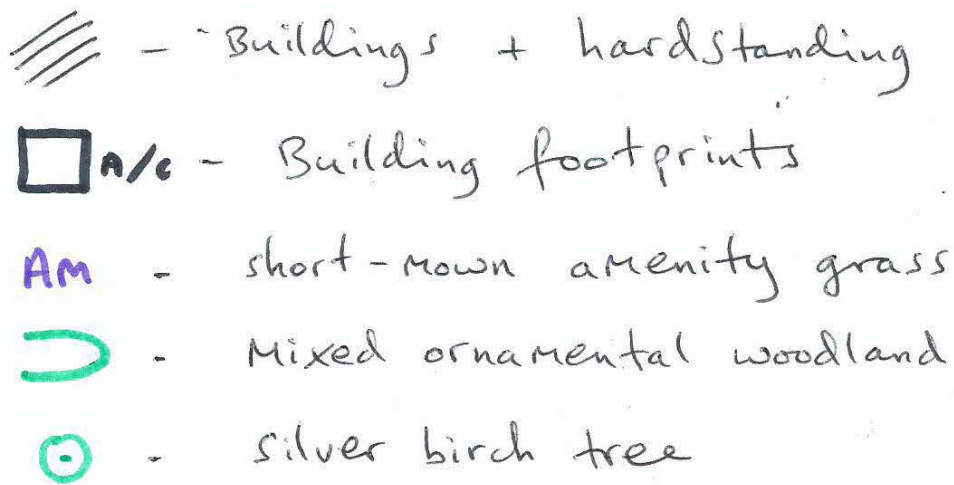 - Buildings + hardstanding
A/C - Building footprints
AM - short-mown amenity grass
- Mixed ornamental woodland
- silver birch tree